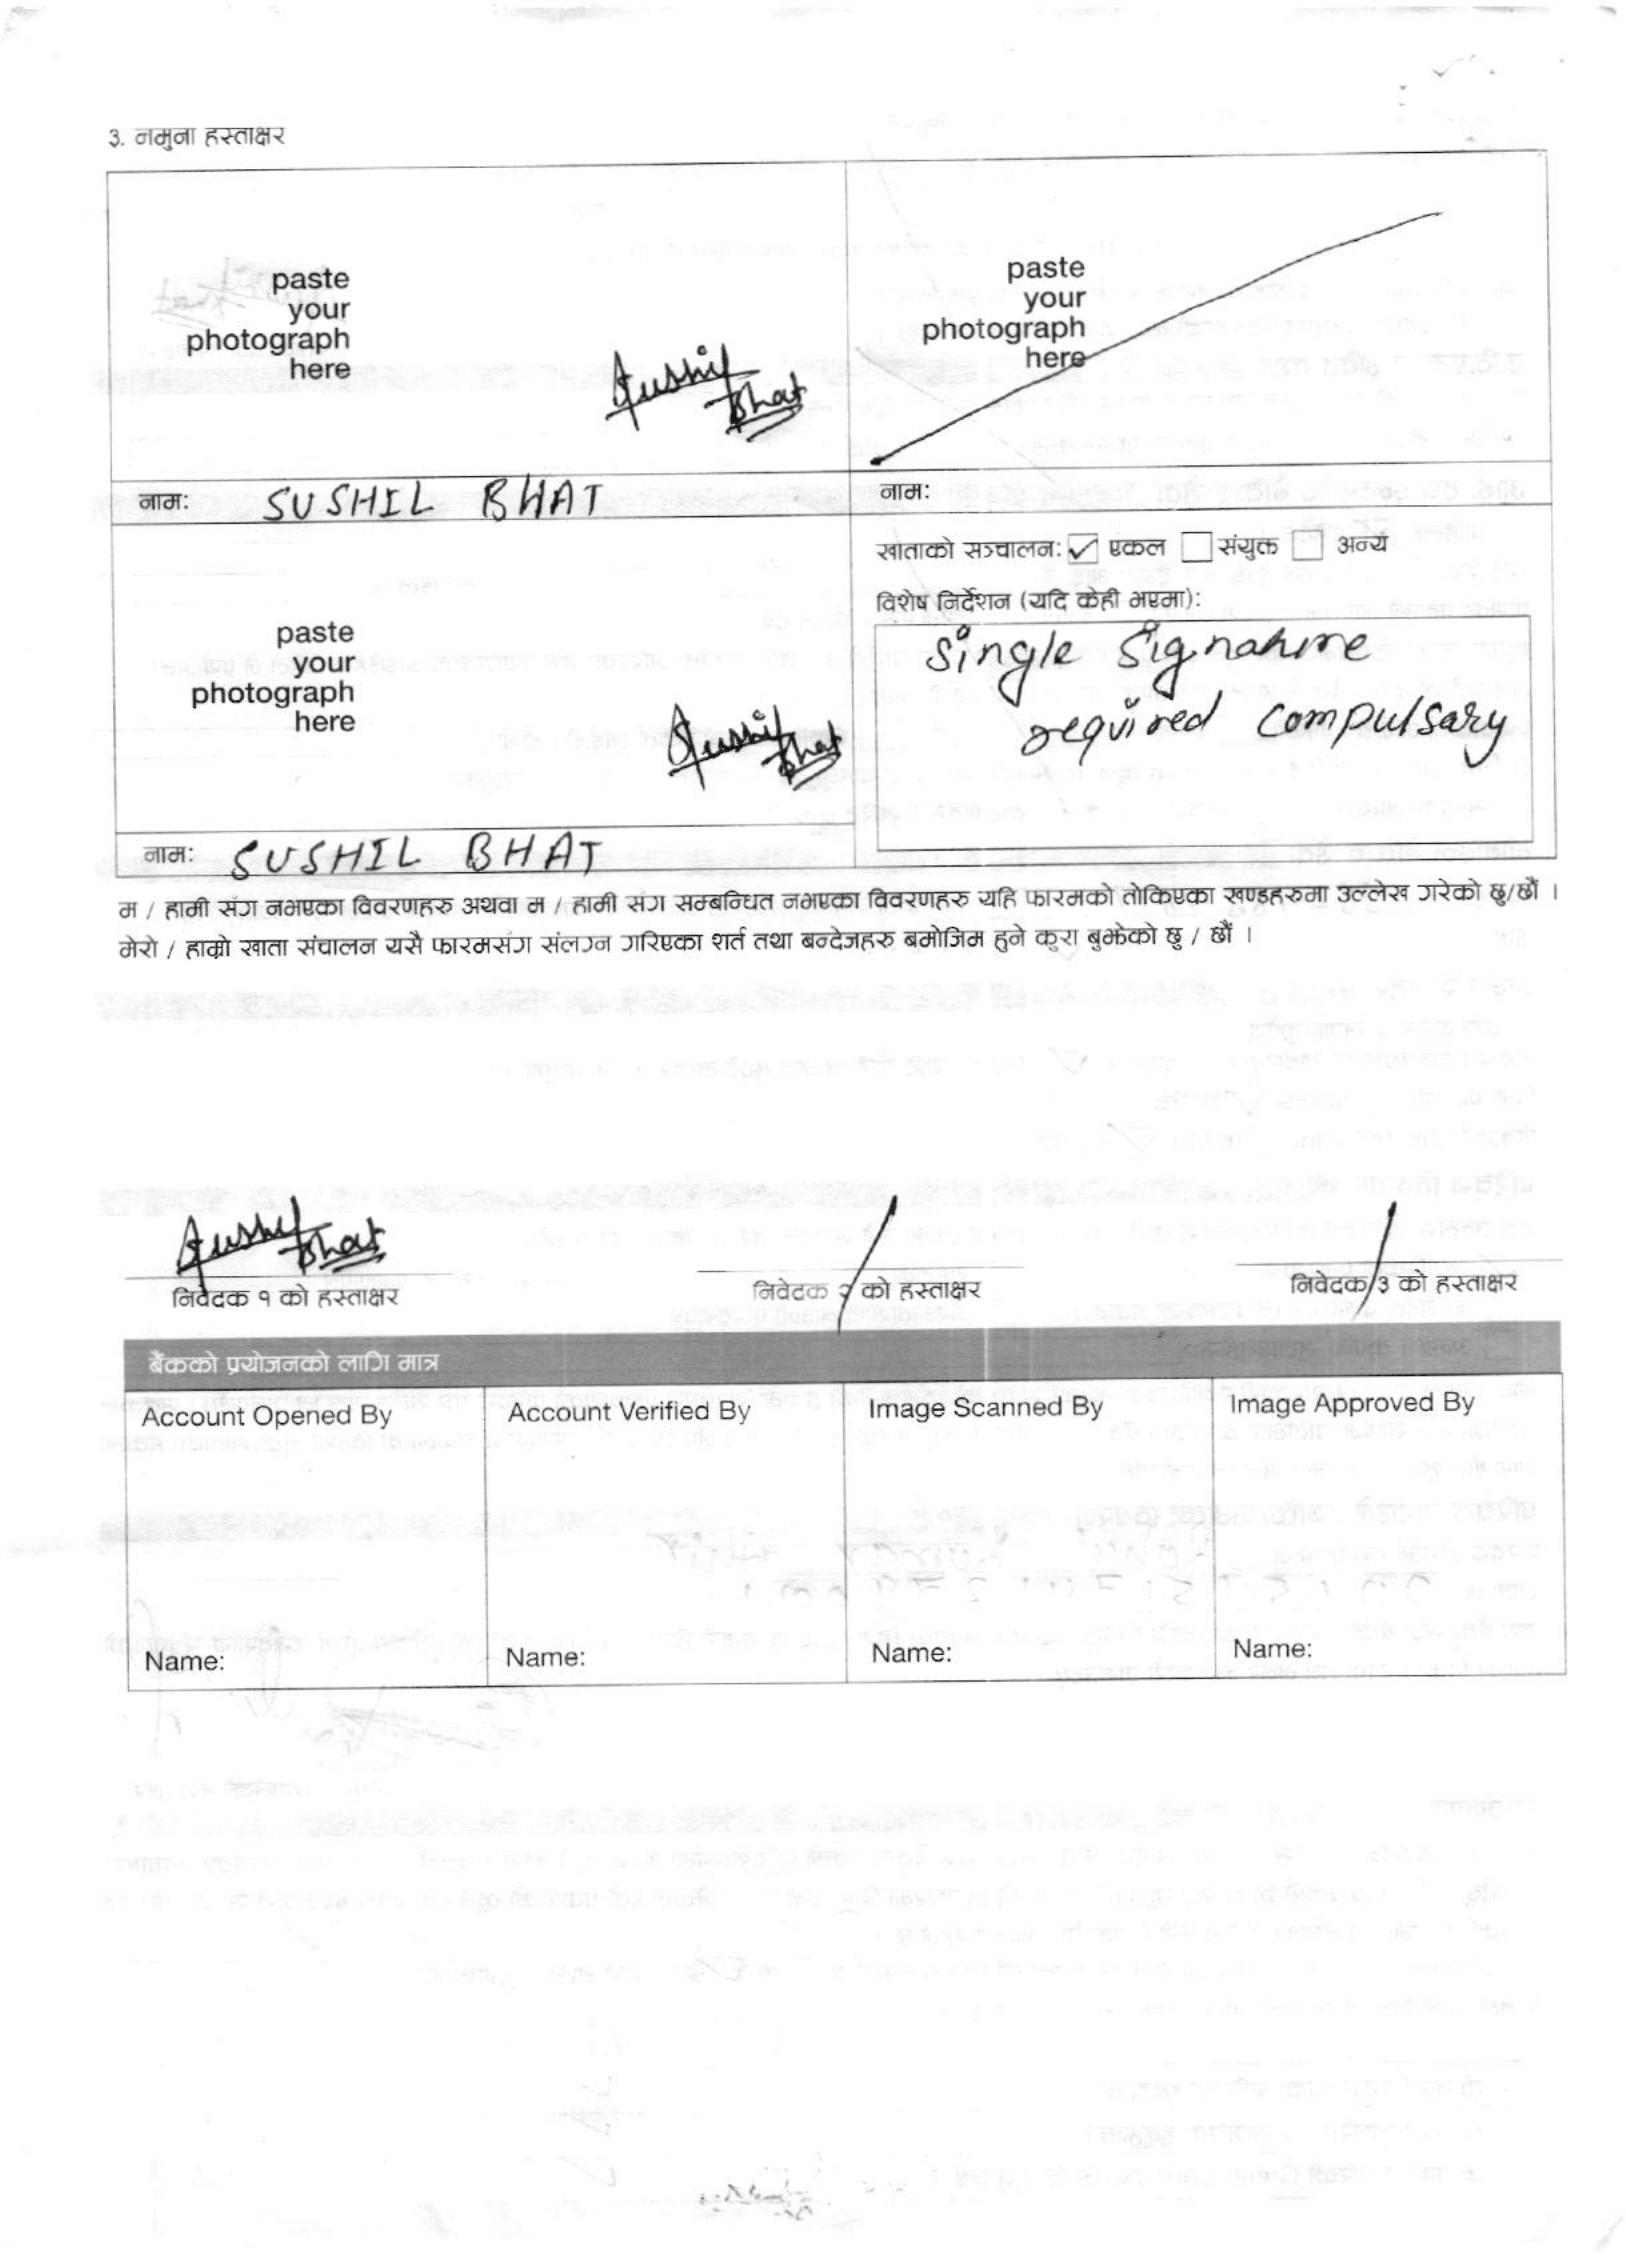 ३. नमुना हस्ताक्षर
paste
your
photograph
here
Sushil
Bhat
paste
your
photograph
here
नाम: SUSHIL BHAT
नाम:
खाताको सञ्चालन: ✓ एकल संयुक्त अन्य
विशेष निर्देशन (यदि केही भएमा):
single signature
required compulsary
paste
your
photograph
here
Sushil
Bhat
नाम: SUSHIL BHAT
म / हामी संग नभएका विवरणहरु अथवा म / हामी संग सम्बन्धित नभएका विवरणहरु यहि फारमको तोकिएका खण्डहरुमा उल्लेख गरेको छु/छौं ।
मेरो / हाम्रो खाता संचालन यसै फारमसंग संलग्न गरिएका शर्त तथा बन्देजहरु बमोजिम हुने कुरा बुझेको छु / छौं ।
Sushil Bhat
निवेदक १ को हस्ताक्षर
निवेदक २ को हस्ताक्षर
निवेदक ३ को हस्ताक्षर
बैंकको प्रयोजनको लागि मात्र
Account Opened By
Account Verified By
Image Scanned By
Image Approved By
Name:
Name:
Name:
Name: